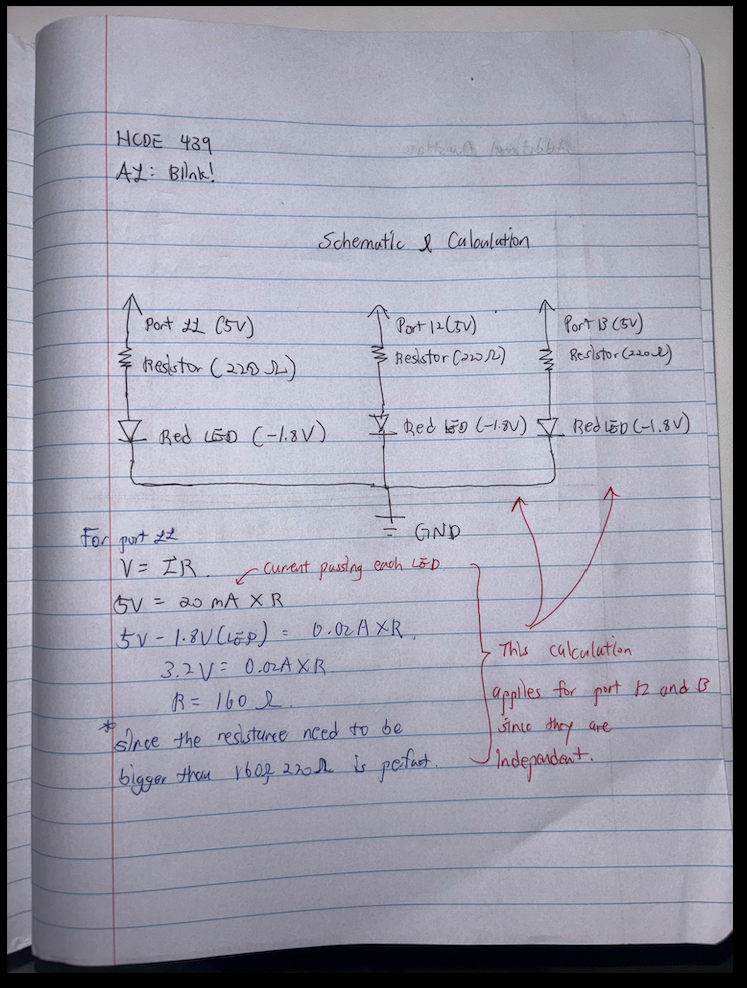 HCDE 439
A1: Blink!
Schematic & Calculation
Port 11 (5V)
Resistor (220 Ω)
Red LED (-1.8V)
Port 12 (5V)
Resistor (220Ω)
Red LED (-1.8V)
Port 13 (5V)
Resistor (220Ω)
Red LED (-1.8V)
GND
For port 11
V = IR.
current passing each LED
5V = 20 mA X R
5V - 1.8V (LED) = 0.02A X R.
3.2V = 0.02A X R
R = 160 Ω.
* since the resistance need to be
bigger than 160, 220Ω is perfect.
This calculation
applies for port 12 and 13
since they are
independent.